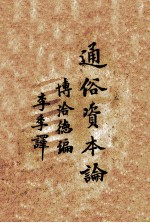 通俗資本論
博洽德編
李季譯